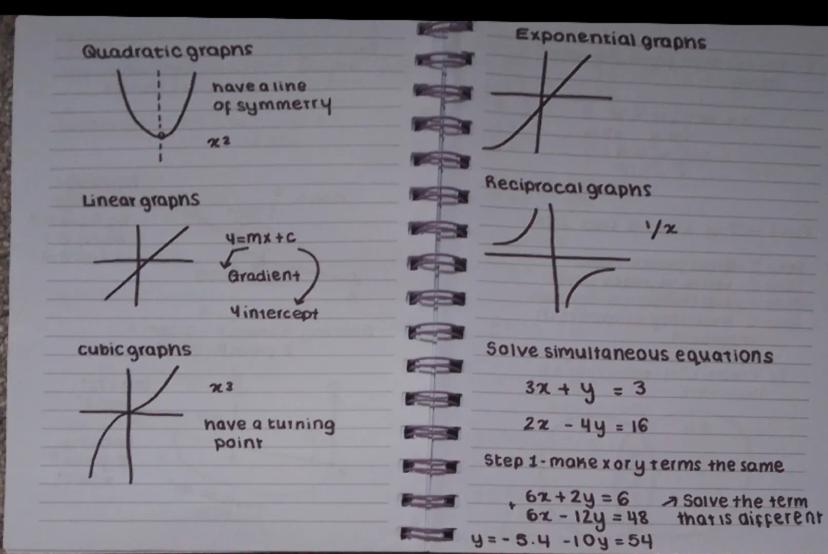 Quadratic graphs
have a line
of symmetry
x²
Linear graphs
y=mx+c
Gradient
y intercept
cubic graphs
x³
have a turning
point
Exponential graphs
Reciprocal graphs
1/x
Solve simultaneous equations
3x + y = 3
2x - 4y = 16
Step 1 - make x or y terms the same
+ 6x + 2y = 6 → Solve the term
6x - 12y = 48 that is different
y = - 5.4 -10y = 54